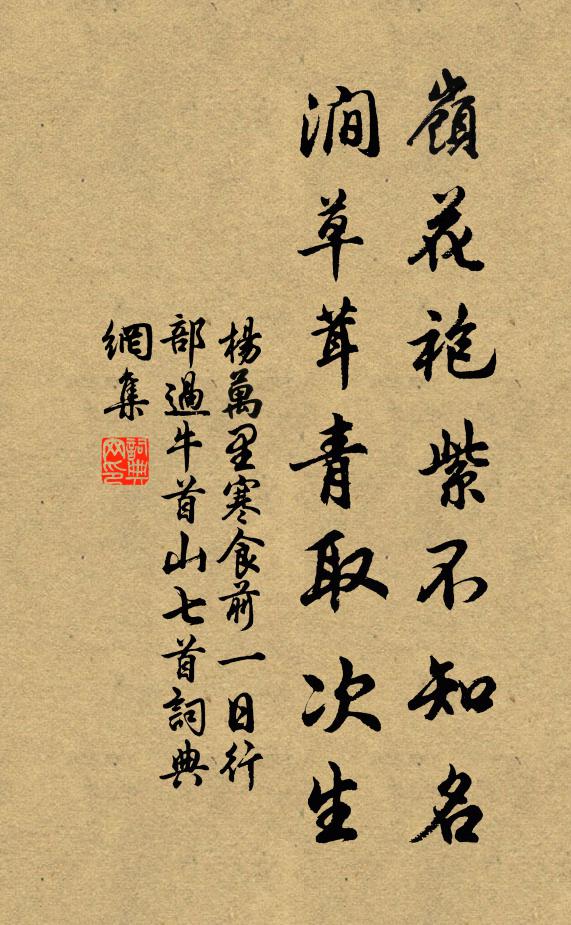 嶺花袍紫不知名
澗草茸青取次生
楊萬里寒食前一日行
部過牛首山七首詞典
網集
詞典
网印